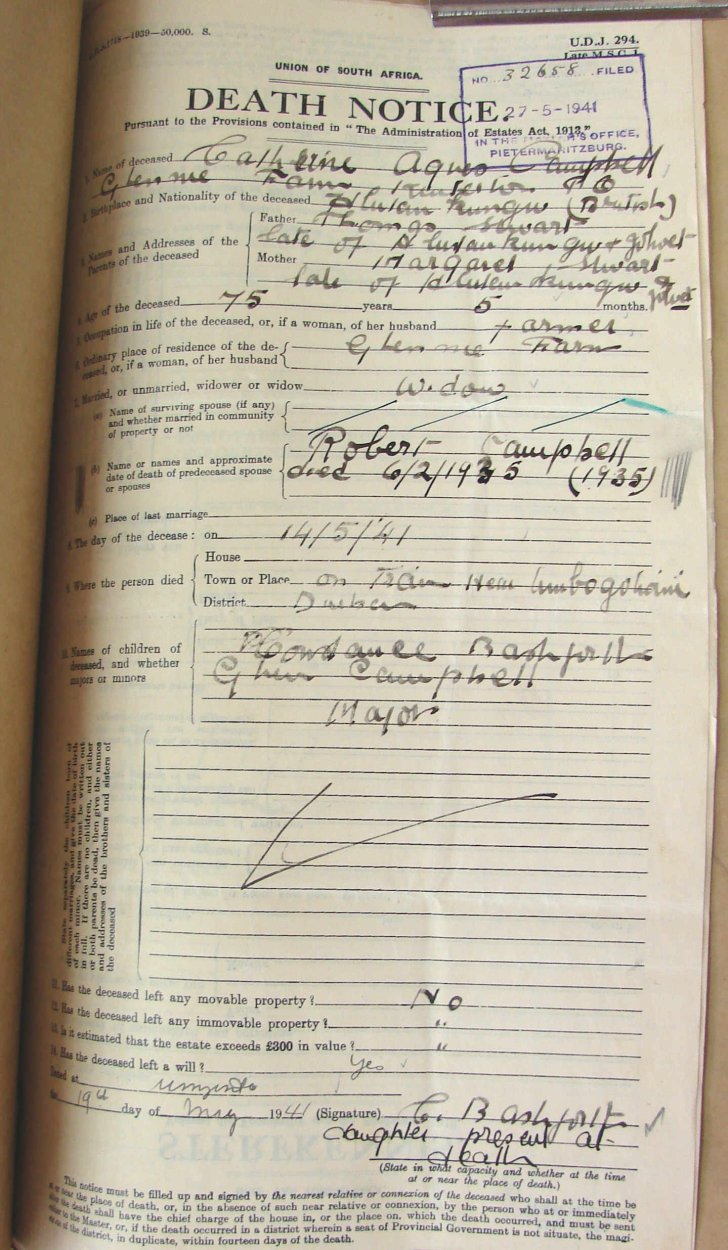 1939—50,000. S.
U.D.J. 294.
Late M.S.C. 1
UNION OF SOUTH AFRICA.
NO. 32658 FILED
27-5-1941
IN THE MASTER'S OFFICE,
PIETERMARITZBURG.
DEATH NOTICE.
Pursuant to the Provisions contained in "The Administration of Estates Act, 1913."
1. Name of deceased Catherine Agnes Campbell
Farm P O
2. Birthplace and Nationality of the deceased (British)
3. Names and Addresses of the Parents of the deceased
Father Thomas Stuart
late of
Mother Margaret Stuart
late of
4. Age of the deceased 75 years 5 months.
5. Occupation in life of the deceased, or, if a woman, of her husband Farmer
6. Ordinary place of residence of the deceased, or, if a woman, of her husband Farm
7. Married, or unmarried, widower or widow Widow
(a) Name of surviving spouse (if any) and whether married in community of property or not
(b) Name or names and approximate date of death of predeceased spouse or spouses
Robert Campbell
died 6/2/1935 (1935)
(c) Place of last marriage
8. The day of the decease: on 14/5/41
9. Where the person died
House
Town or Place on Train Near
District Durban
10. Names of children of deceased, and whether majors or minors
Constance Bashforth
Campbell
Major
State separately the children born of
different marriages, and give the date of birth
of each minor. Names must be written out
in full. If there are no children, and either
or both parents be dead, then give the names
and addresses of the brothers and sisters of
the deceased
11. Has the deceased left any movable property? No
12. Has the deceased left any immovable property? "
13. Is it estimated that the estate exceeds £300 in value? "
14. Has the deceased left a will? Yes
Dated at Umzinto
19th day of May 1941 (Signature) C. Bashforth
daughter present at
death
(State in what capacity and whether at the time
at or near the place of death.)
This notice must be filled up and signed by the nearest relative or connexion of the deceased who shall at the time be
at or near the place of death, or, in the absence of such near relative or connexion, by the person who at or immediately
after the death shall have the chief charge of the house in, or the place on, which the death occurred, and must be sent
either to the Master, or, if the death occurred in a district wherein a seat of Provincial Government is not situate, the magi-
of the district, in duplicate, within fourteen days of the death.